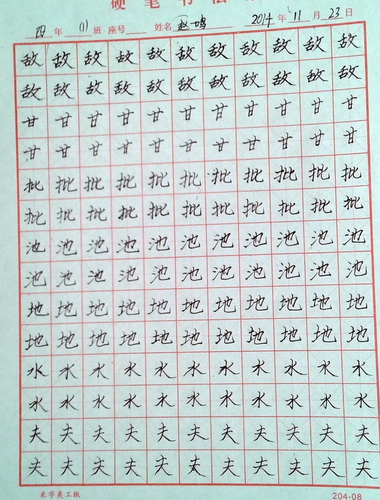 硬笔书法
四年(1)班 座号 姓名 2014年11月23日
敌敌敌敌敌敌敌敌敌敌敌
敌敌敌敌敌敌敌敌敌敌敌
甘甘甘甘甘甘甘甘甘甘甘
甘甘甘甘甘甘甘甘甘甘甘
批批批批批批批批批批批
批批批批批批批批批批批
池池池池池池池池池池池
池池池池池池池池池池池
地地地地地地地地地地地
地地地地地地地地地地地
水水水水水水水水水水水
水水水水水水水水水水水
夫夫夫夫夫夫夫夫夫夫夫
夫夫夫夫夫夫夫夫夫夫夫
米字美工纸 204-08